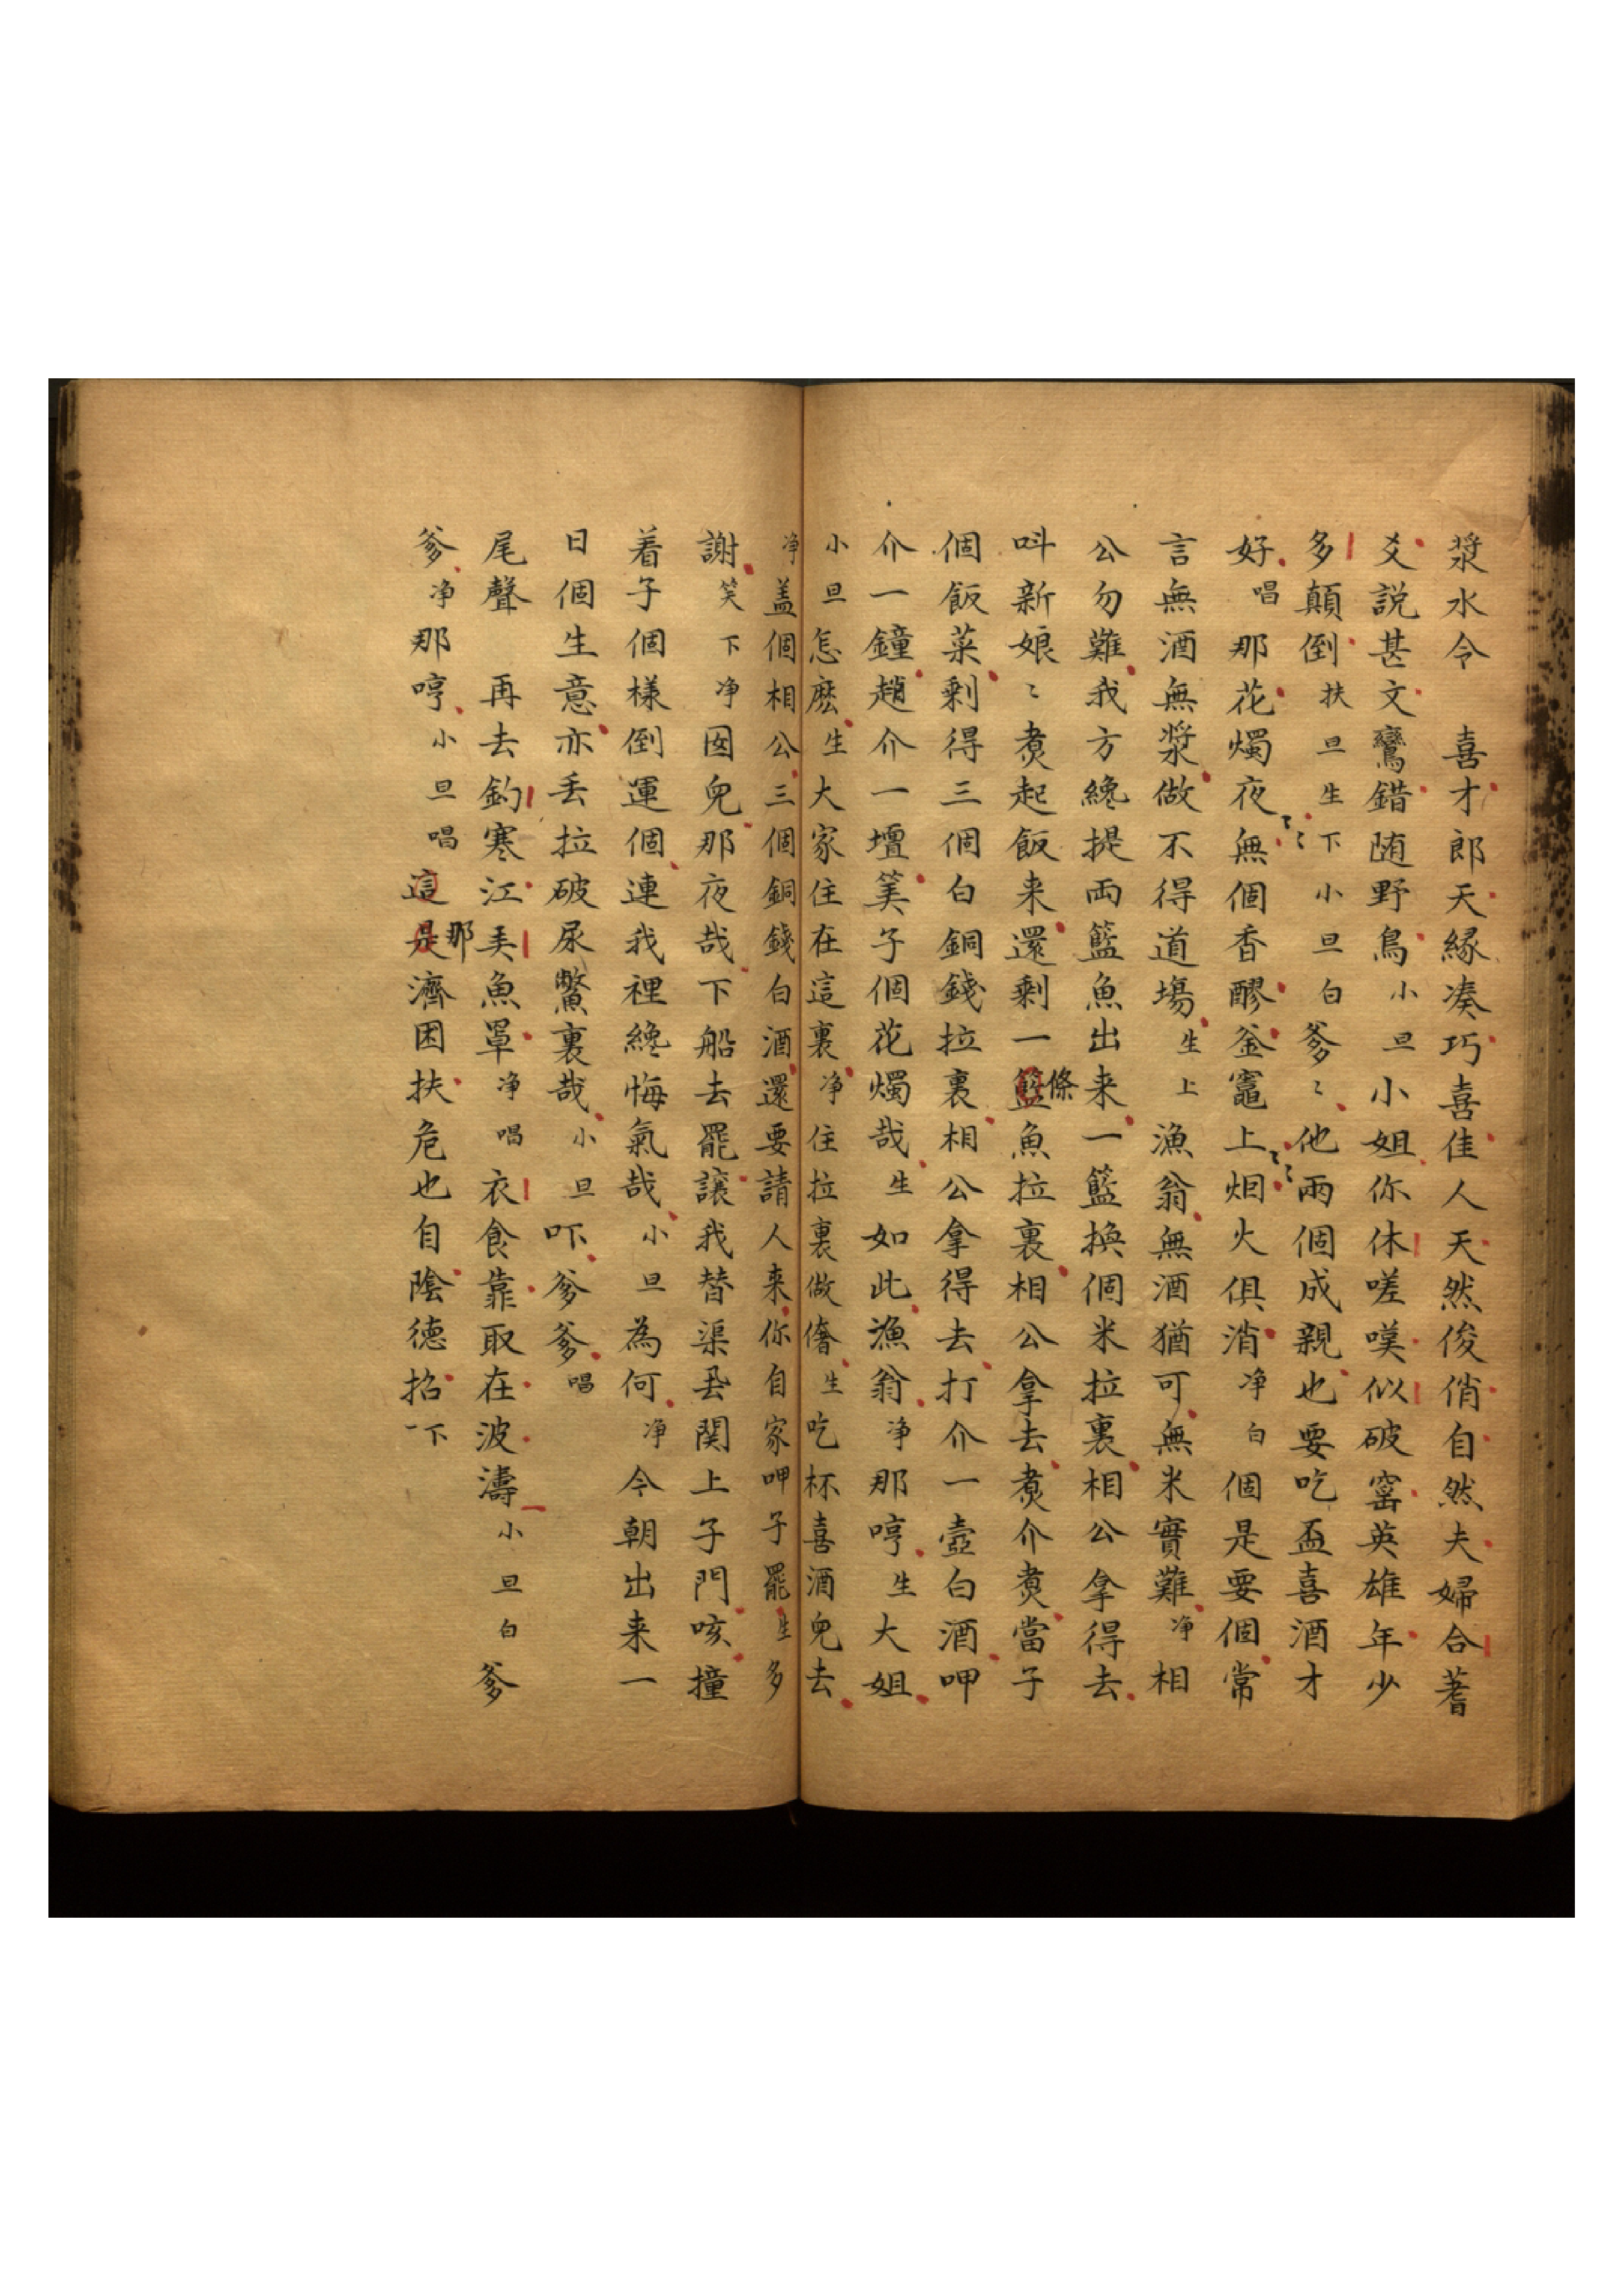 漿水令　喜才郎天緣凑巧喜佳人天然俊俏自然夫婦合蓍
爻說甚文鸞錯随野鳥小旦小姐你休嗟嘆似破窰英雄年少
多顛倒扶旦生下小旦白爹〻他兩個成親也要吃盃喜酒才
好唱那花燭夜〻〻無個香醪釜竈上〻〻烟火俱消净白個是要個常
言無酒無漿做不得道塲生上漁翁無酒猶可無米實難净相
公勿難我方纔提両籃魚出来一籃換個米拉裏相公拿得去
呌新娘〻煑起飯来還剩一籃條魚拉裏相公拿去煑介煑當子
個飯菜剩得三個白銅錢拉裏相公拿得去打介一壺白酒呷
介一鐘趙介一壇筭子個花燭哉生如此漁翁净那哼生大姐
小旦怎麽生大家住在這裏净住拉裏做偺生吃杯喜酒兒去
净盖個相公三個銅錢白酒還要請人来你自家呷子罷生多
謝笑下净囡兒那夜哉下船去罷讓我替渠丟関上子門咳撞
着子個樣倒運個連我裡纔悔氣哉小旦為何净今朝出来一
日個生意亦丢拉破尿鱉裏哉小旦吓爹爹唱
尾聲　再去釣寒江美魚罩净唱衣食靠取在波濤小旦白爹
爹净那哼小旦唱這是那濟困扶危也自陰德招一下